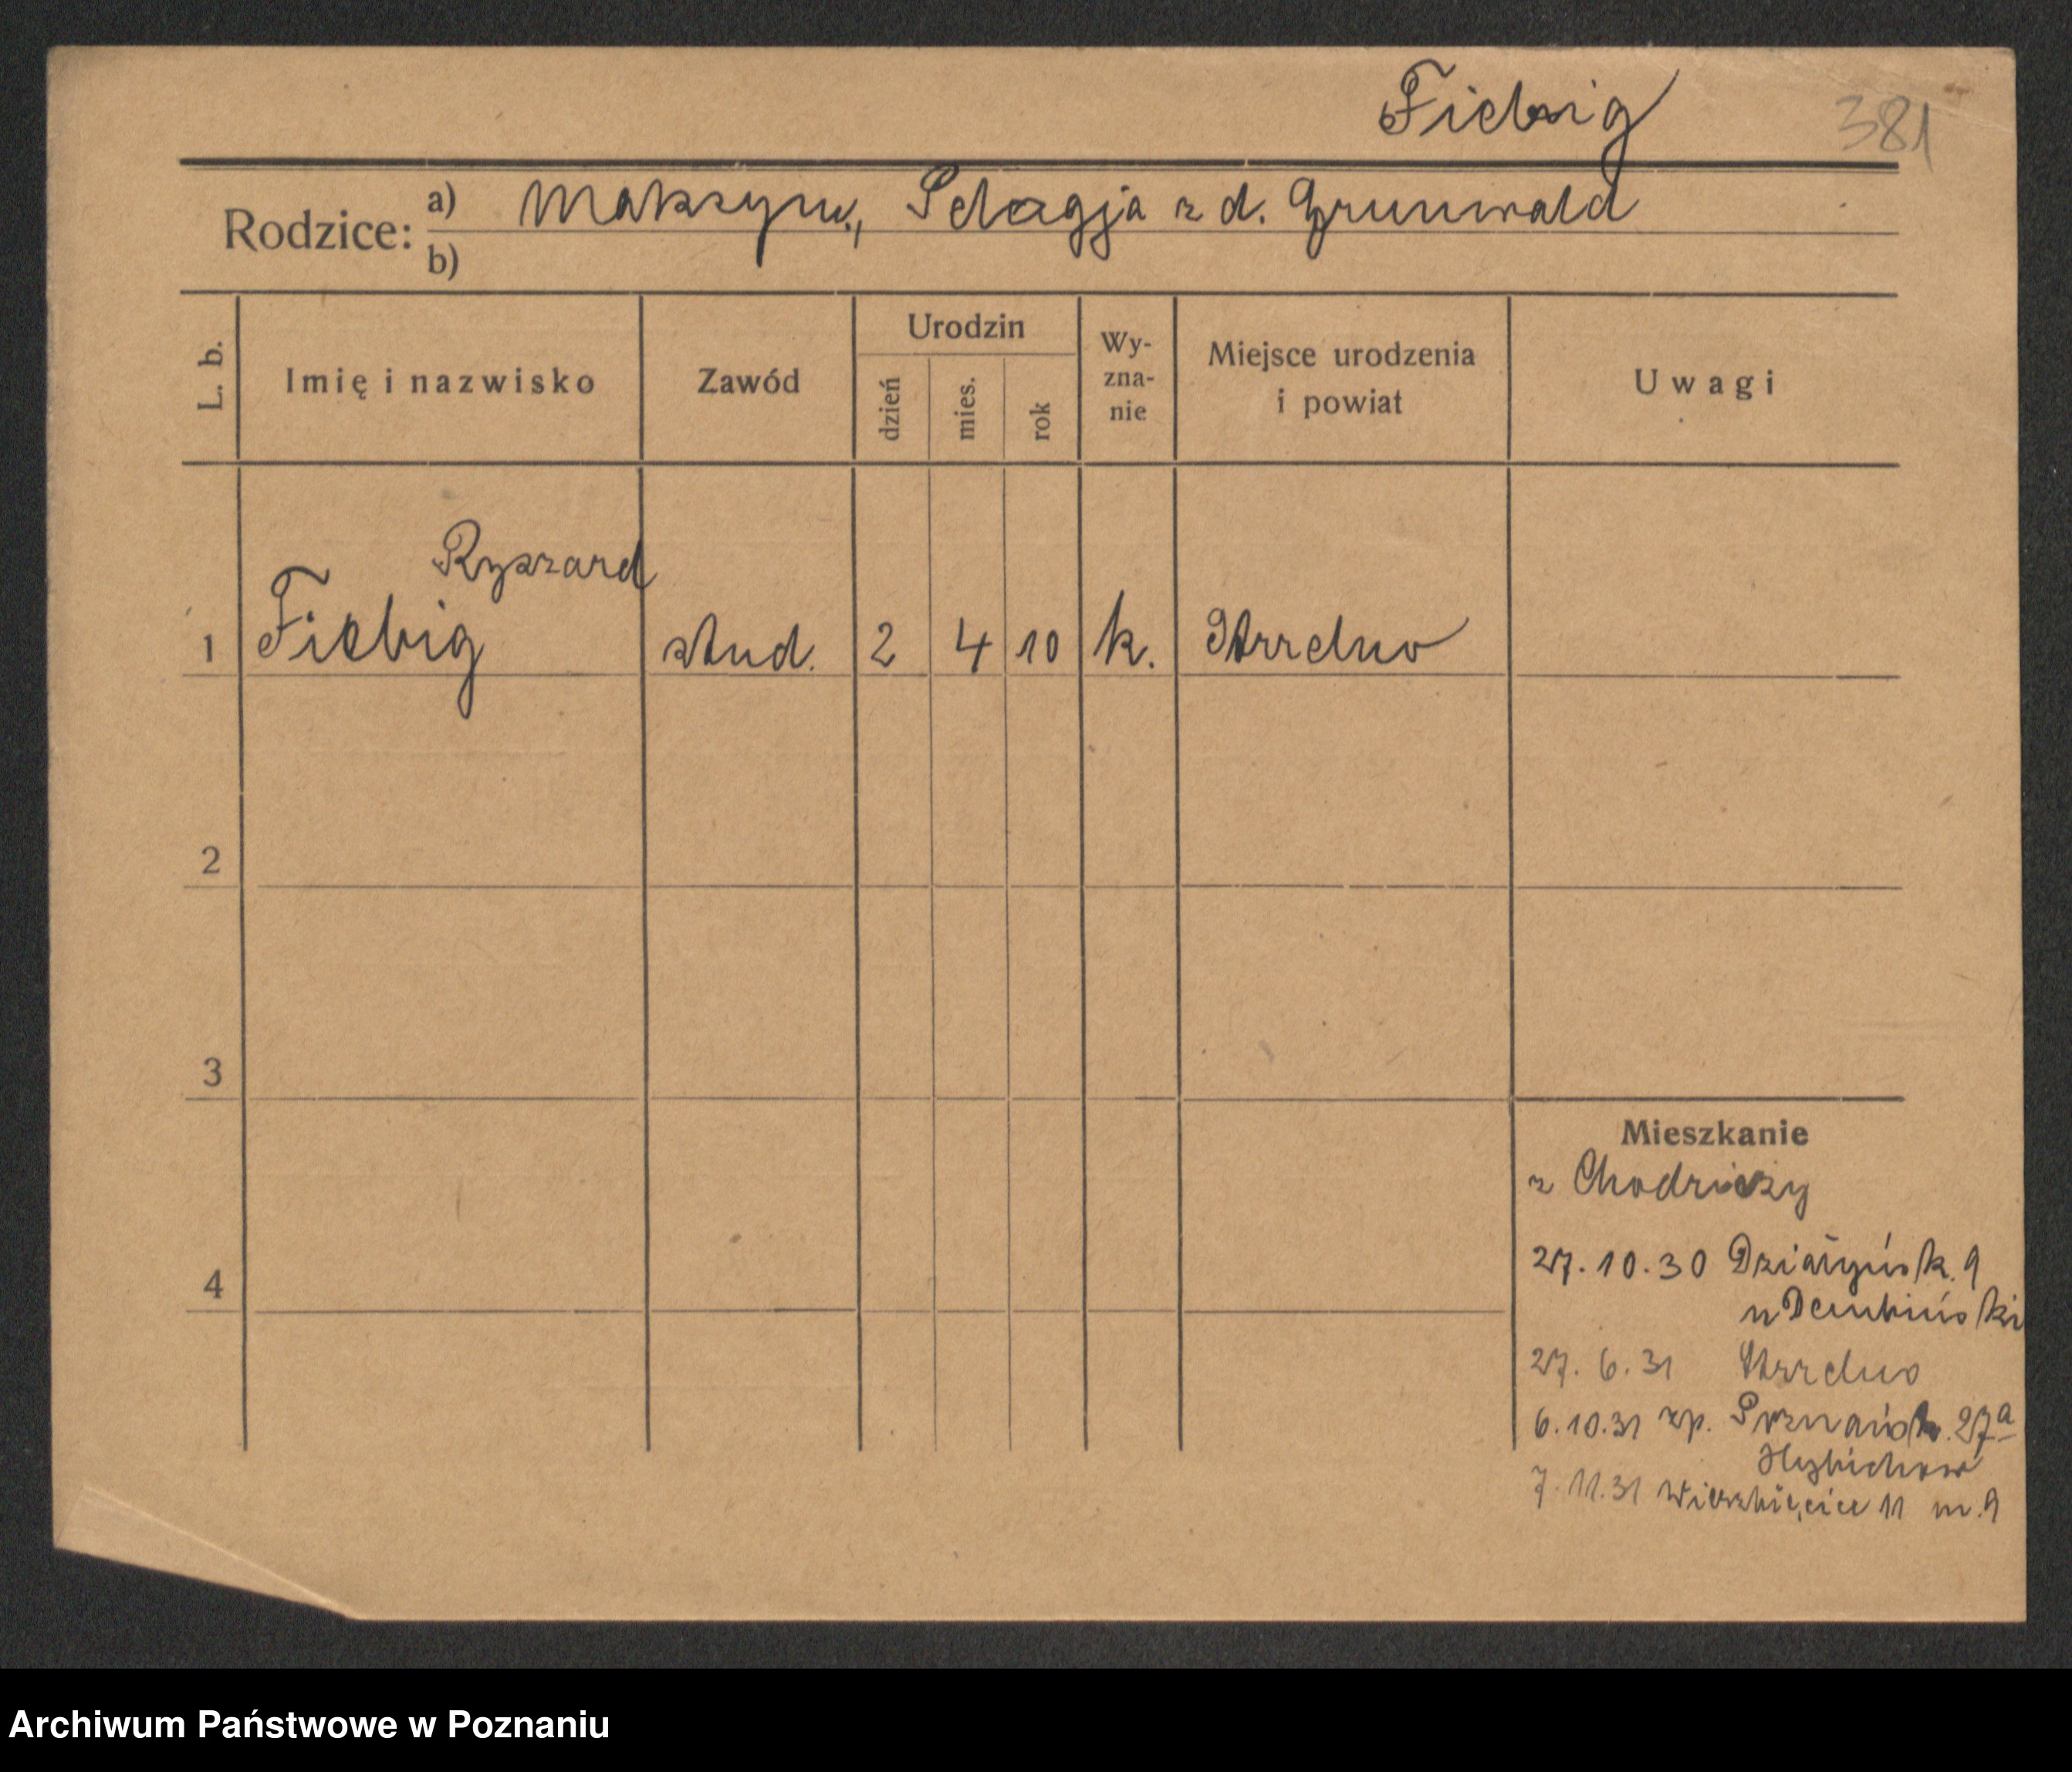 Fiebig
381
Rodzice: a) Maksym., Pelagja z d. Grunwald
b)
L. b.
Imię i nazwisko
Zawód
Urodzin
dzień
mies.
rok
Wy-
zna-
nie
Miejsce urodzenia
i powiat
Uwagi
Ryszard
1 Fiebig stud. 2 4 10 k. Strzelno
2
3
4
Mieszkanie
z Chodzieży
27.10.30 Działyńsk. 9
u Dembiński
27. 6. 31 Strzelno
6.10.31 zp. Poznańsk. 27a
7.11.31 Wierzbięcice 11 m. 9
Archiwum Państwowe w Poznaniu